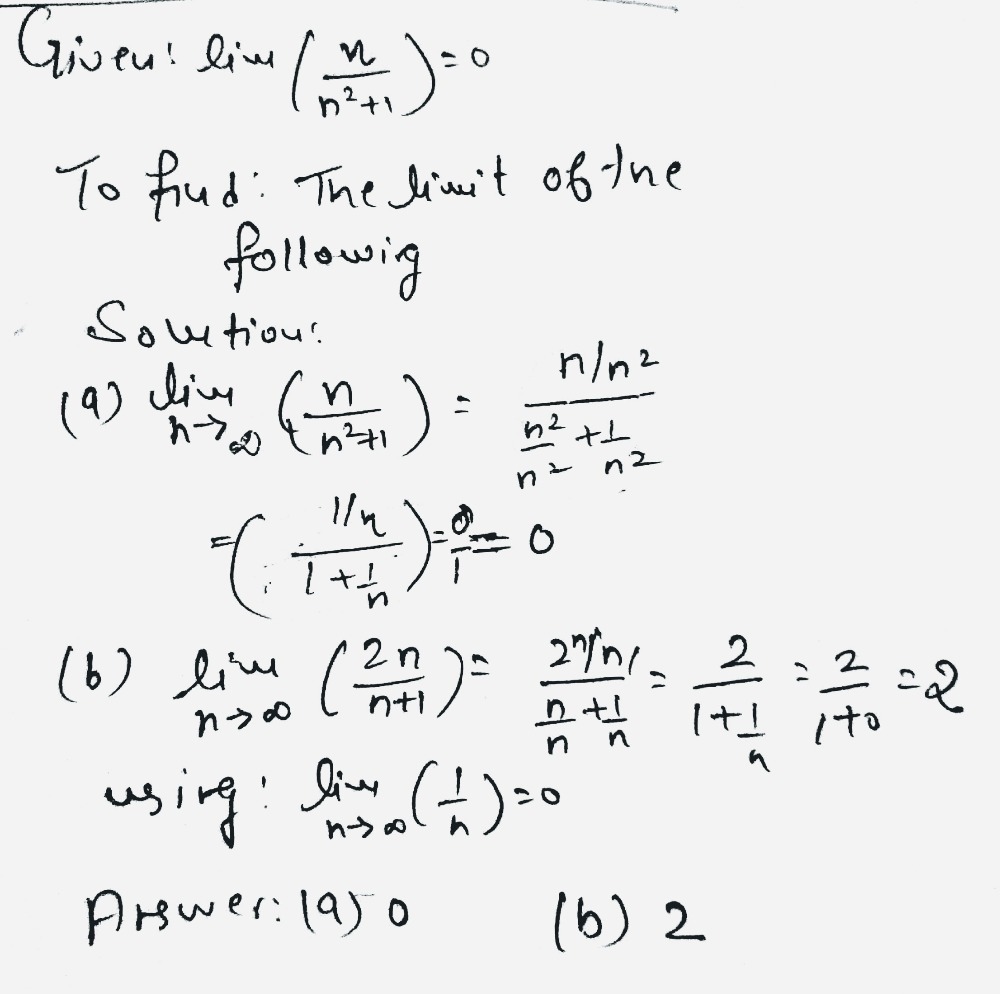 Given: lim (n/(n²+1)) = 0
To find: The limit of the
followig
Solution:
(a) lim n→∞ (n/(n²+1)) = (n/n²)/(n²/n² + 1/n²)
= ((1/n)/(1 + 1/n)) = 0/1 = 0
(b) lim n→∞ (2n/(n+1)) = (2n/n)/(n/n + 1/n) = 2/(1 + 1/n) = 2/(1+0) = 2
using: lim n→∞ (1/n) = 0
Answer: (a) 0 (b) 2